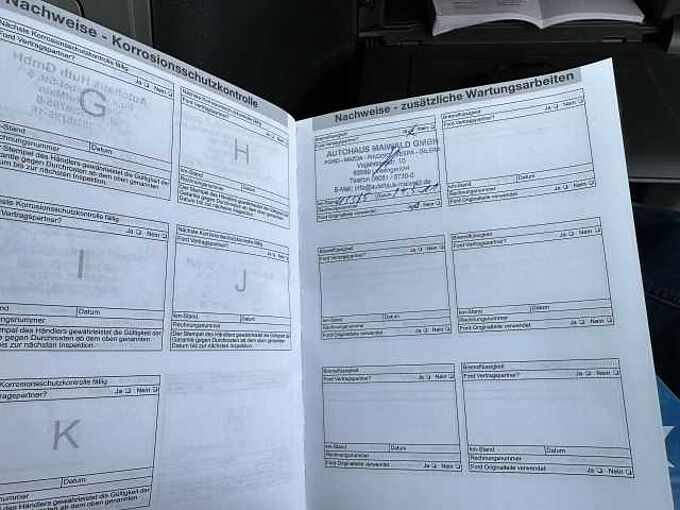 Nachweise - Korrosionsschutzkontrolle
Nächste Korrosionsschutzkontrolle fällig
Ford Vertragspartner? Ja ❑ Nein ❑
G
km-Stand Datum
Rechnungsnummer
Der Stempel des Händlers gewährleistet die Gültigkeit der
Garantie gegen Durchrosten ab dem oben genannten
Datum bis zur nächsten Inspektion.
Nächste Korrosionsschutzkontrolle fällig
Ford Vertragspartner? Ja ❑ Nein ❑
H
km-Stand Datum
Rechnungsnummer
Der Stempel des Händlers gewährleistet die Gültigkeit der
Garantie gegen Durchrosten ab dem oben genannten
Datum bis zur nächsten Inspektion.
Korrosionsschutzkontrolle fällig
Vertragspartner? Ja ❑ Nein ❑
I
Stand Datum
nungsnummer
empel des Händlers gewährleistet die Gültigkeit der
e gegen Durchrosten ab dem oben genannten
bis zur nächsten Inspektion.
Nächste Korrosionsschutzkontrolle fällig
Ford Vertragspartner? Ja ❑ Nein ❑
J
km-Stand Datum
Rechnungsnummer
Der Stempel des Händlers gewährleistet die Gültigkeit der
Garantie gegen Durchrosten ab dem oben genannten
Datum bis zur nächsten Inspektion.
Korrosionsschutzkontrolle fällig
Vertragspartner? Ja ❑ Nein ❑
K
Datum
nummer
des Händlers gewährleistet die Gültigkeit der
gegen Durchrosten ab dem oben genannten
ur nächsten Inspektion.
Nachweise - zusätzliche Wartungsarbeiten
Bremsflüssigkeit
Nein ❑
AUTOHAUS MAIWALD GMBH
FORD - MAZDA - PIAGGIO
10
Telefon
E-Mail: info@autohaus-maiwald.de
Ford Originalteile verwendet Nein ❑
Bremsflüssigkeit
Ford Vertragspartner? Ja ❑ Nein ❑
km-Stand Datum
Rechnungsnummer
Ford Originalteile verwendet Ja ❑ Nein ❑
Bremsflüssigkeit
Ford Vertragspartner? Ja ❑ Nein ❑
km-Stand Datum
Rechnungsnummer
Ford Originalteile verwendet Ja ❑ Nein ❑
Bremsflüssigkeit
Ford Vertragspartner? Ja ❑ Nein ❑
km-Stand Datum
Rechnungsnummer
Ford Originalteile verwendet Ja ❑ Nein ❑
Bremsflüssigkeit
Ford Vertragspartner? Ja ❑ Nein ❑
km-Stand Datum
Rechnungsnummer
Ford Originalteile verwendet Ja ❑ Nein ❑
Bremsflüssigkeit
Ford Vertragspartner? Ja ❑ Nein ❑
km-Stand Datum
Rechnungsnummer
Ford Originalteile verwendet Ja ❑ Nein ❑